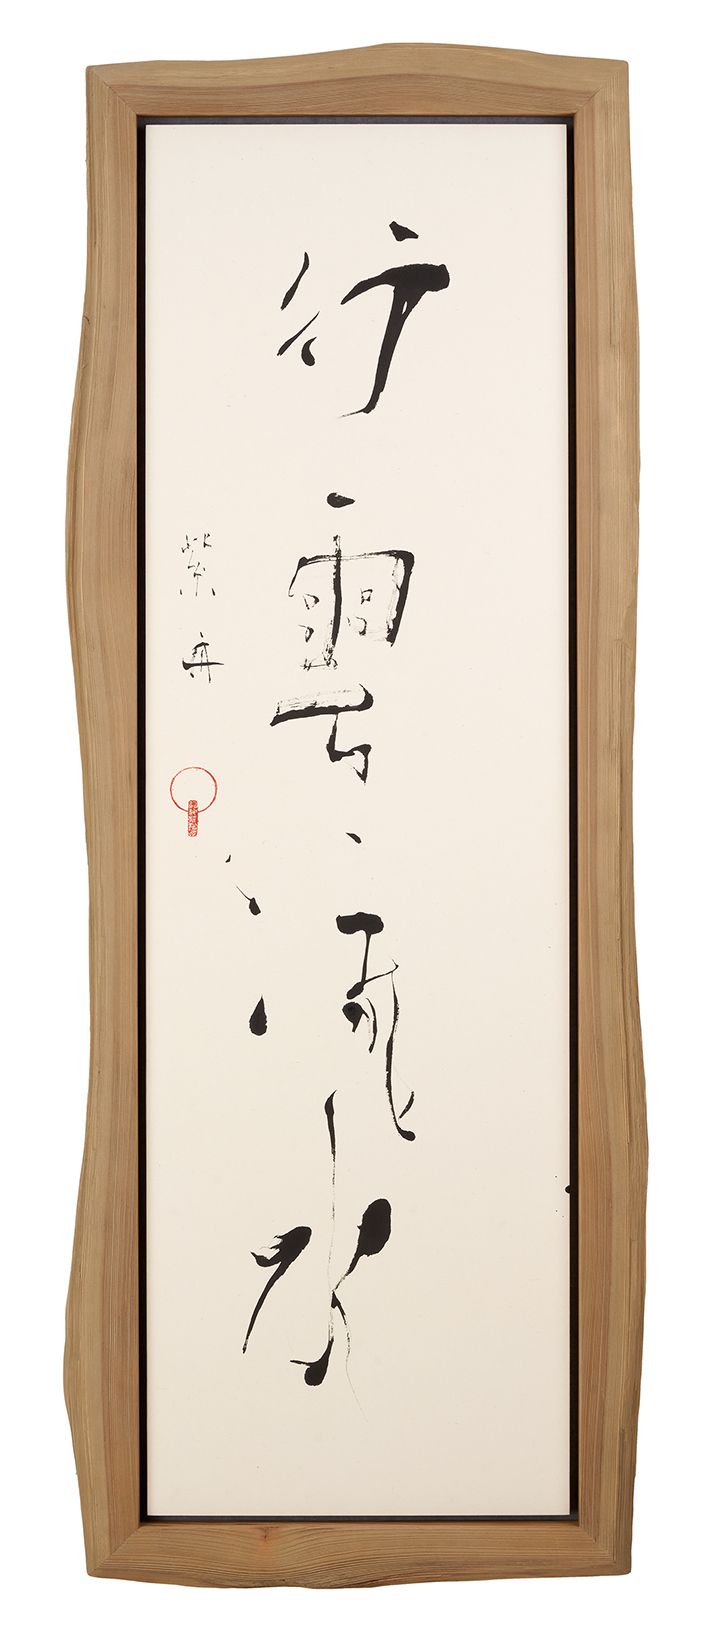 行雲流水
紫舟